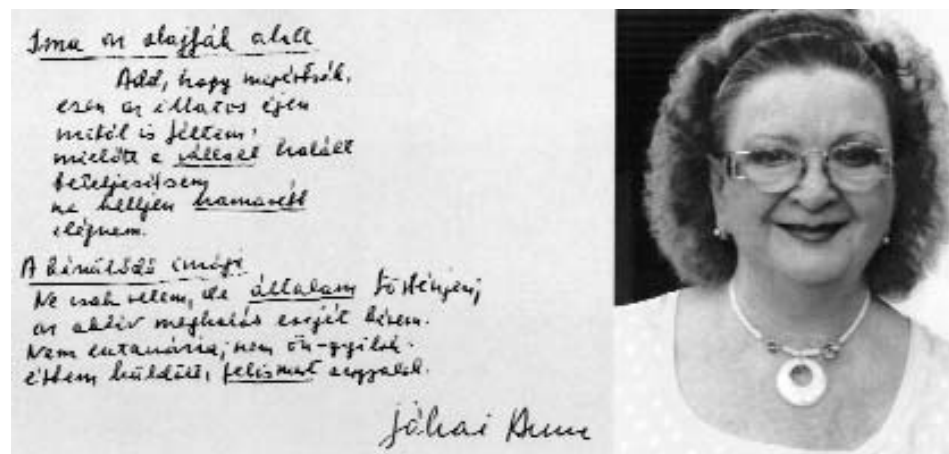 Ima az olajfák alatt
Add, hogy megértsék,
ezen az illatos éjen
mitől is féltem,
mielőtt a vállalt halált
beteljesítsem
ne kelljen hamarább
elégnem.
A bénulódó imája
Ne csak velem, de általam történjen;
az aktív meghalás erejét kérem.
Nem eutanázia, nem ön-gyilok.
értem küldött, felismert angyalok.
Jókai Anna